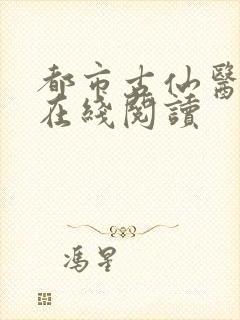 都市古仙醫
在綫閱讀
馮星